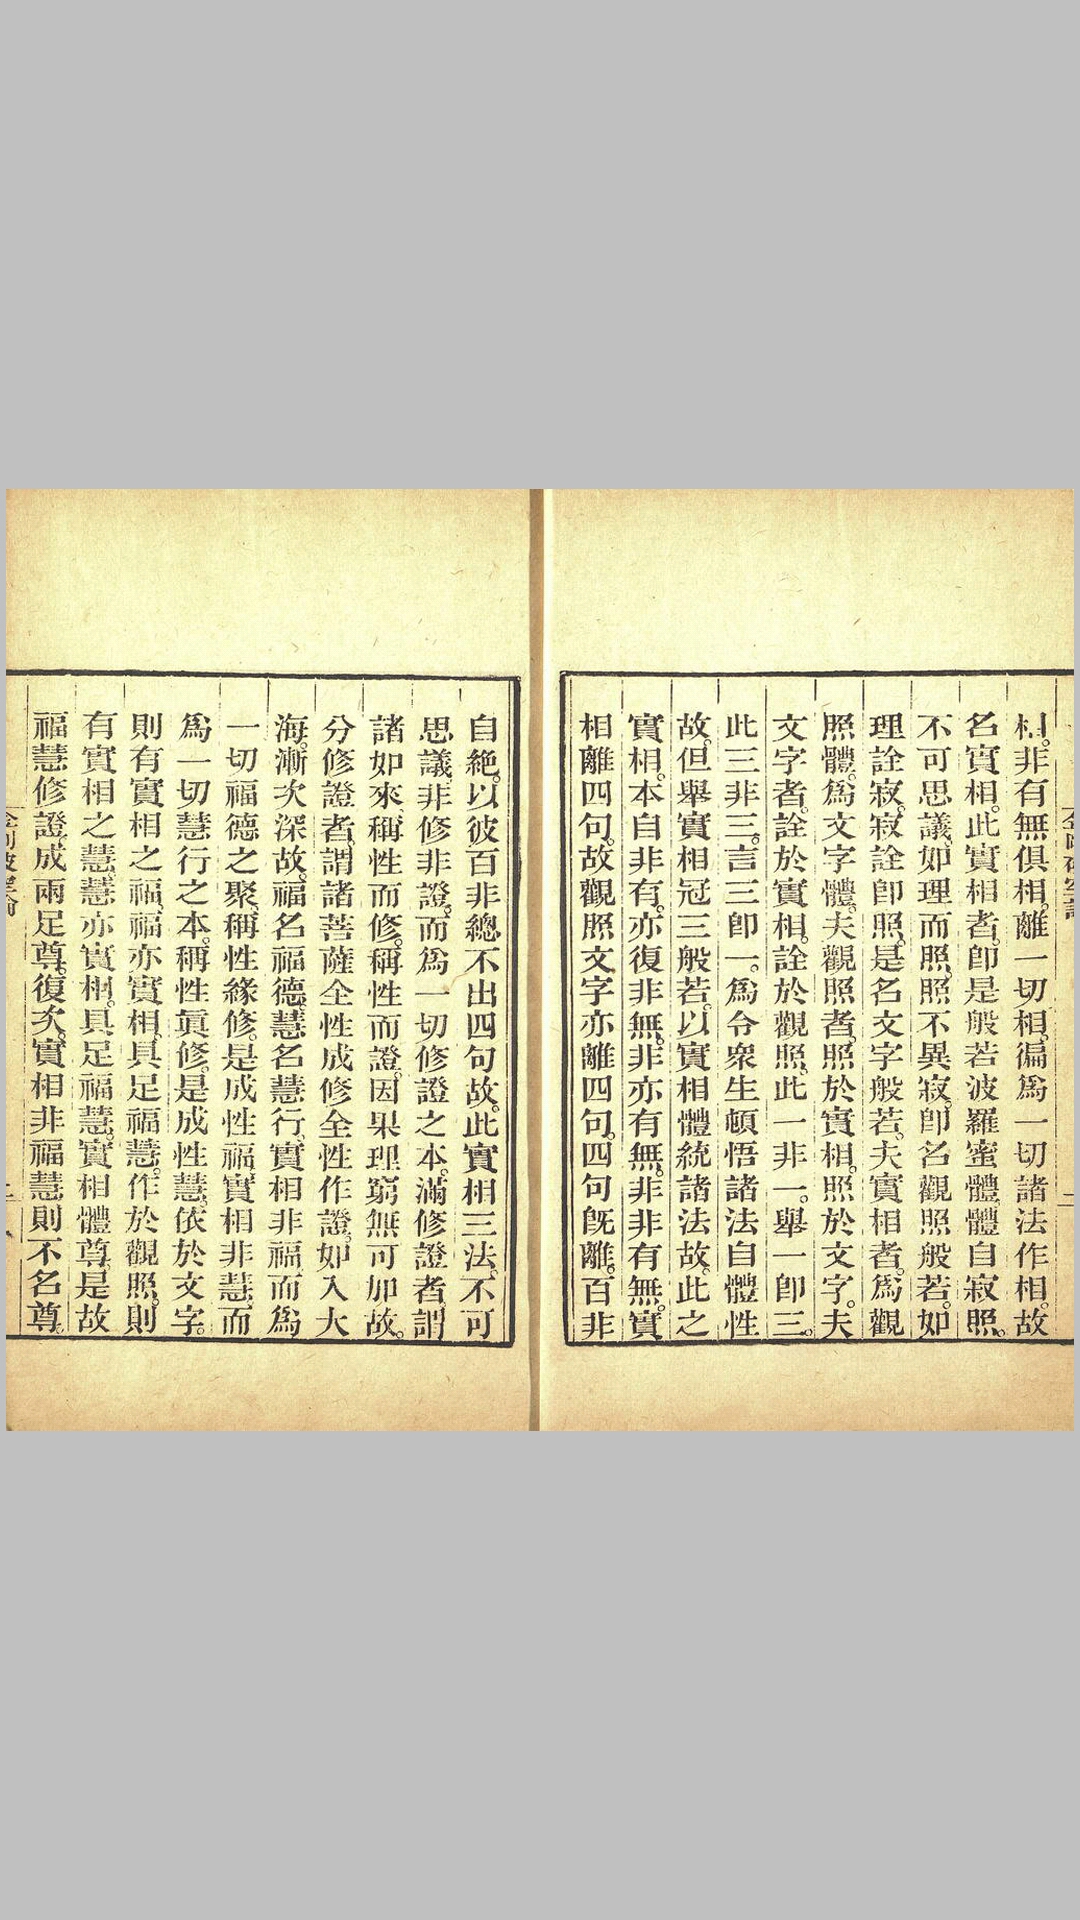 相。非有無俱相。離一切相。徧爲一切諸法作相。故
名實相。此實相者。卽是般若波羅蜜體。體自寂照。
不可思議。如理而照。照不異寂。卽名觀照般若。如
理詮寂。寂詮卽照。是名文字般若。夫實相者。爲觀
照體。爲文字體。夫觀照者。照於實相。照於文字。夫
文字者。詮於實相。詮於觀照。此一非一。舉一卽三。
此三非三。言三卽一。爲令衆生頓悟諸法自體性
故。但舉實相冠三般若。以實相體統諸法故。此之
實相。本自非有。亦復非無。非亦有無。非非有無。實
相離四句。故觀照文字亦離四句。四句旣離。百非
自絶。以彼百非總不出四句故。此實相三法。不可
思議。非修非證。而爲一切修證之本。滿修證者。謂
諸如來。稱性而修。稱性而證。因果理窮。無可加故。
分修證者。謂諸菩薩。全性成修。全性作證。如入大
海。漸次深故。福名福德。慧名慧行。實相非福。而爲
一切福德之聚。稱性緣修。是成性福。實相非慧。而
爲一切慧行之本。稱性眞修。是成性慧。依於文字。
則有實相之福。福亦實相。具足福慧。作於觀照。則
有實相之慧。慧亦實相。具足福慧。實相體尊。是故
福慧修證。成兩足尊。復次。實相非福慧。則不名尊。
金剛破空論